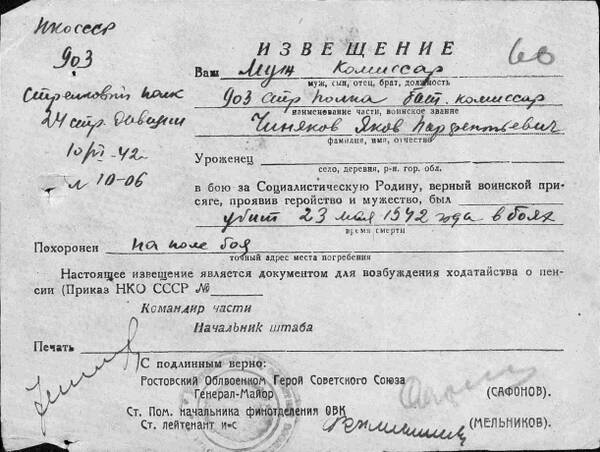 НКО СССР
903
Стрелковый полк
24 стр. дивизии
10/VI-42
10-06
ИЗВЕЩЕНИЕ
Ваш муж комиссар
муж, сын, отец, брат, должность
903 стр полка бат. комиссар
наименование части, воинское звание
Чиняков Яков Парфентьевич
фамилия, имя, отчество
Уроженец
село, деревня, р-н. гор. обл.
в бою за Социалистическую Родину, верный воинской при-
сяге, проявив геройство и мужество, был
убит 23 мая 1942 года в боях
время смерти
Похоронен на поле боя
точный адрес места погребения
Настоящее извещение является документом для возбуждения ходатайства о пен-
сии (Приказ НКО СССР №
Командир части
Начальник штаба
Печать
С подлинным верно:
Ростовский Облвоенком Герой Советского Союза
Генерал-Майор (САФОНОВ).
Ст. Пом. начальника финотделения ОВК
Ст. лейтенант и-с (МЕЛЬНИКОВ).